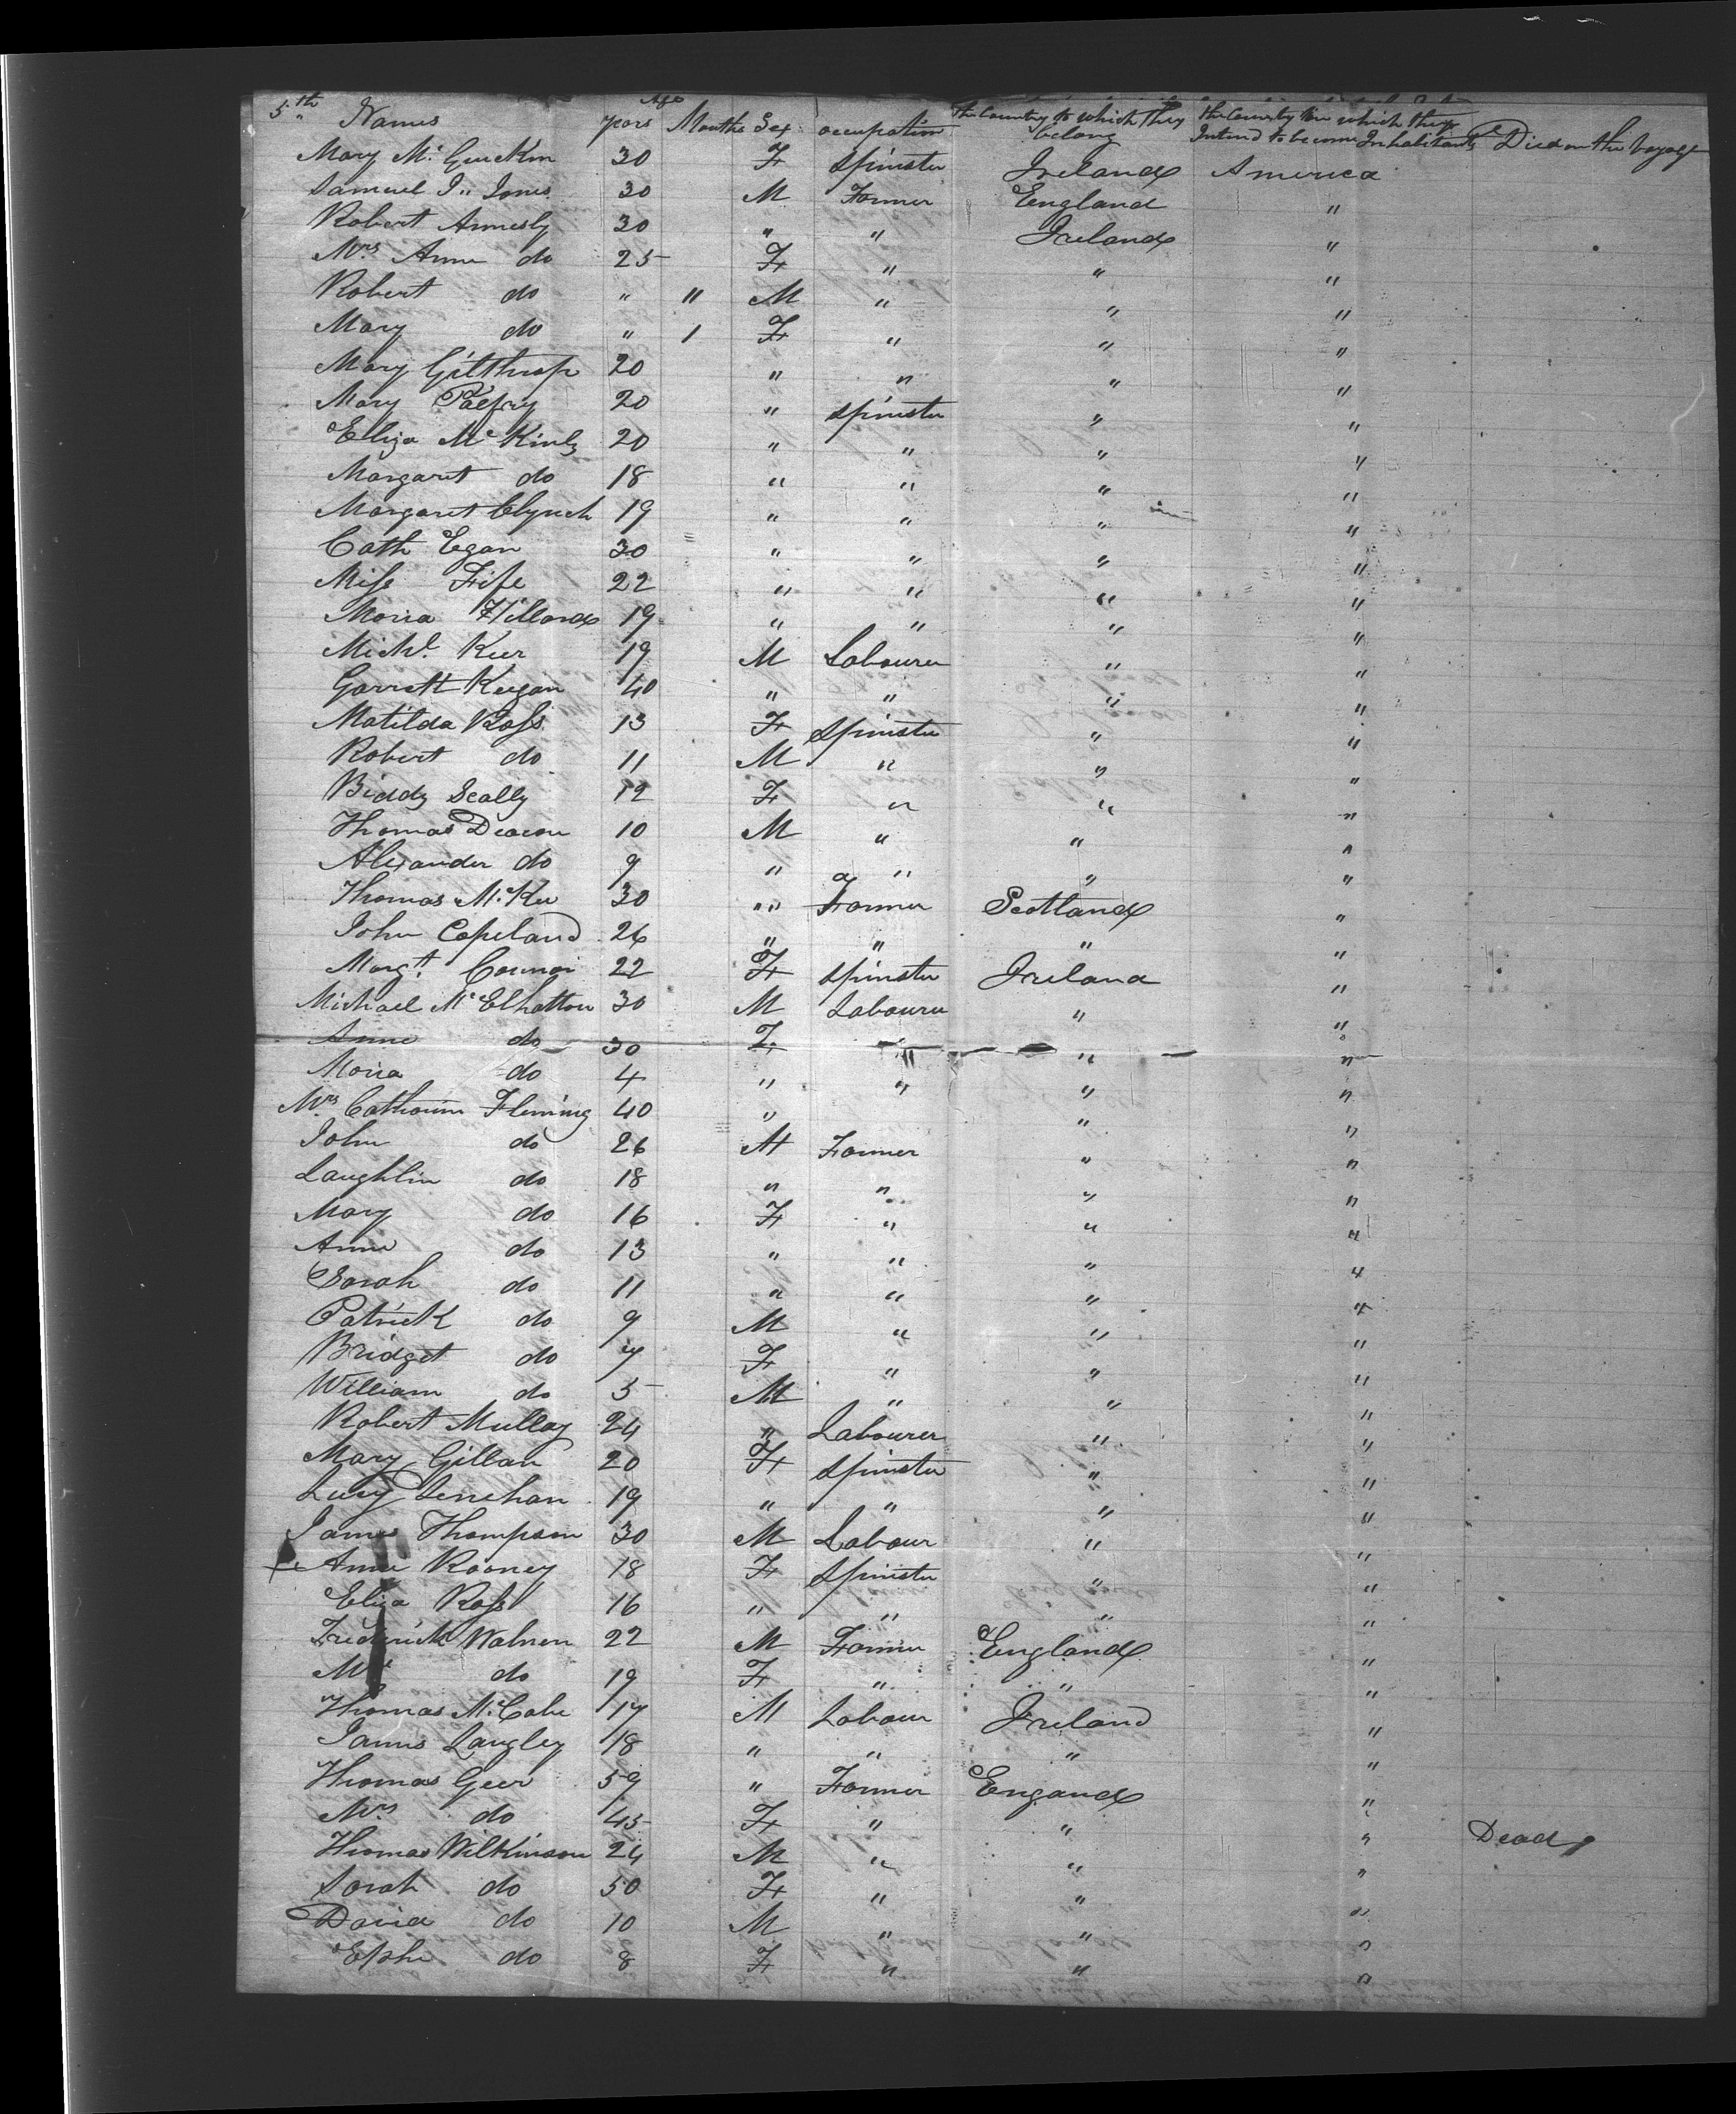 5th Names Age years Months Sex occupation The Country to which They belong the Country in which they Intend to become Inhabitants Died on the Voyage
Mary Mc Guckin 30 F Spinster Ireland America
Samuel J" Jones 30 M Farmer England "
Robert Annesly 30 " " Ireland "
Mrs Anne do 25 F " " "
Robert do " 11 M " " "
Mary do " 1 F " " "
Mary Gilthrop 20 " " " "
Mary Palfry 20 " Spinster " "
Eliza Mc Kinly 20 " " " "
Margaret do 18 " " " "
Margaret Clynch 19 " " " "
Cath Egan 30 " " " "
Miss Fife 22 " " " "
Moria Hilland 19 " " " "
Michl Keer 19 M Labourer " "
Garrett Keegan 40 " " " "
Matilda Ross 13 F Spinster " "
Robert do 11 M " " "
Biddy Scally 12 F " " "
Thomas Deacon 10 M " " "
Alexander do 9 " " " "
Thomas McKee 30 " Farmer Scotland "
John Copeland 26 " " " "
Margt Connor 22 F Spinster Ireland "
Michael McElhatton 30 M Labourer " "
Anne do 30 F " " "
Moria do 4 " " " "
Mrs Catharine Fleming 40 " " "
John do 26 M Farmer " "
Laughlin do 18 " " " "
Mary do 16 F " " "
Anne do 13 " " " "
Sarah do 11 " " " "
Patrick do 9 M " " "
Bridget do 7 F " " "
William do 5 M " " "
Robert Mullay 24 " Labourer " "
Mary Gillan 20 F Spinster " "
Lucy Lenehan 19 " " " "
James Thompson 30 M Labour " "
Anne Rooney 18 F Spinster " "
Eliza Ross 16 " " " "
Frederick Walmen 22 M Farmer England "
do 19 F " " "
Thomas McCabe 17 M Labour Ireland "
James Langley 18 " " " "
Thomas Geer 59 " Farmer Engand "
Mrs do 45 F " " " Dead
Thomas Wilkinson 24 M " " "
Sarah do 50 F " " "
David do 10 M " " "
do 8 F " " "